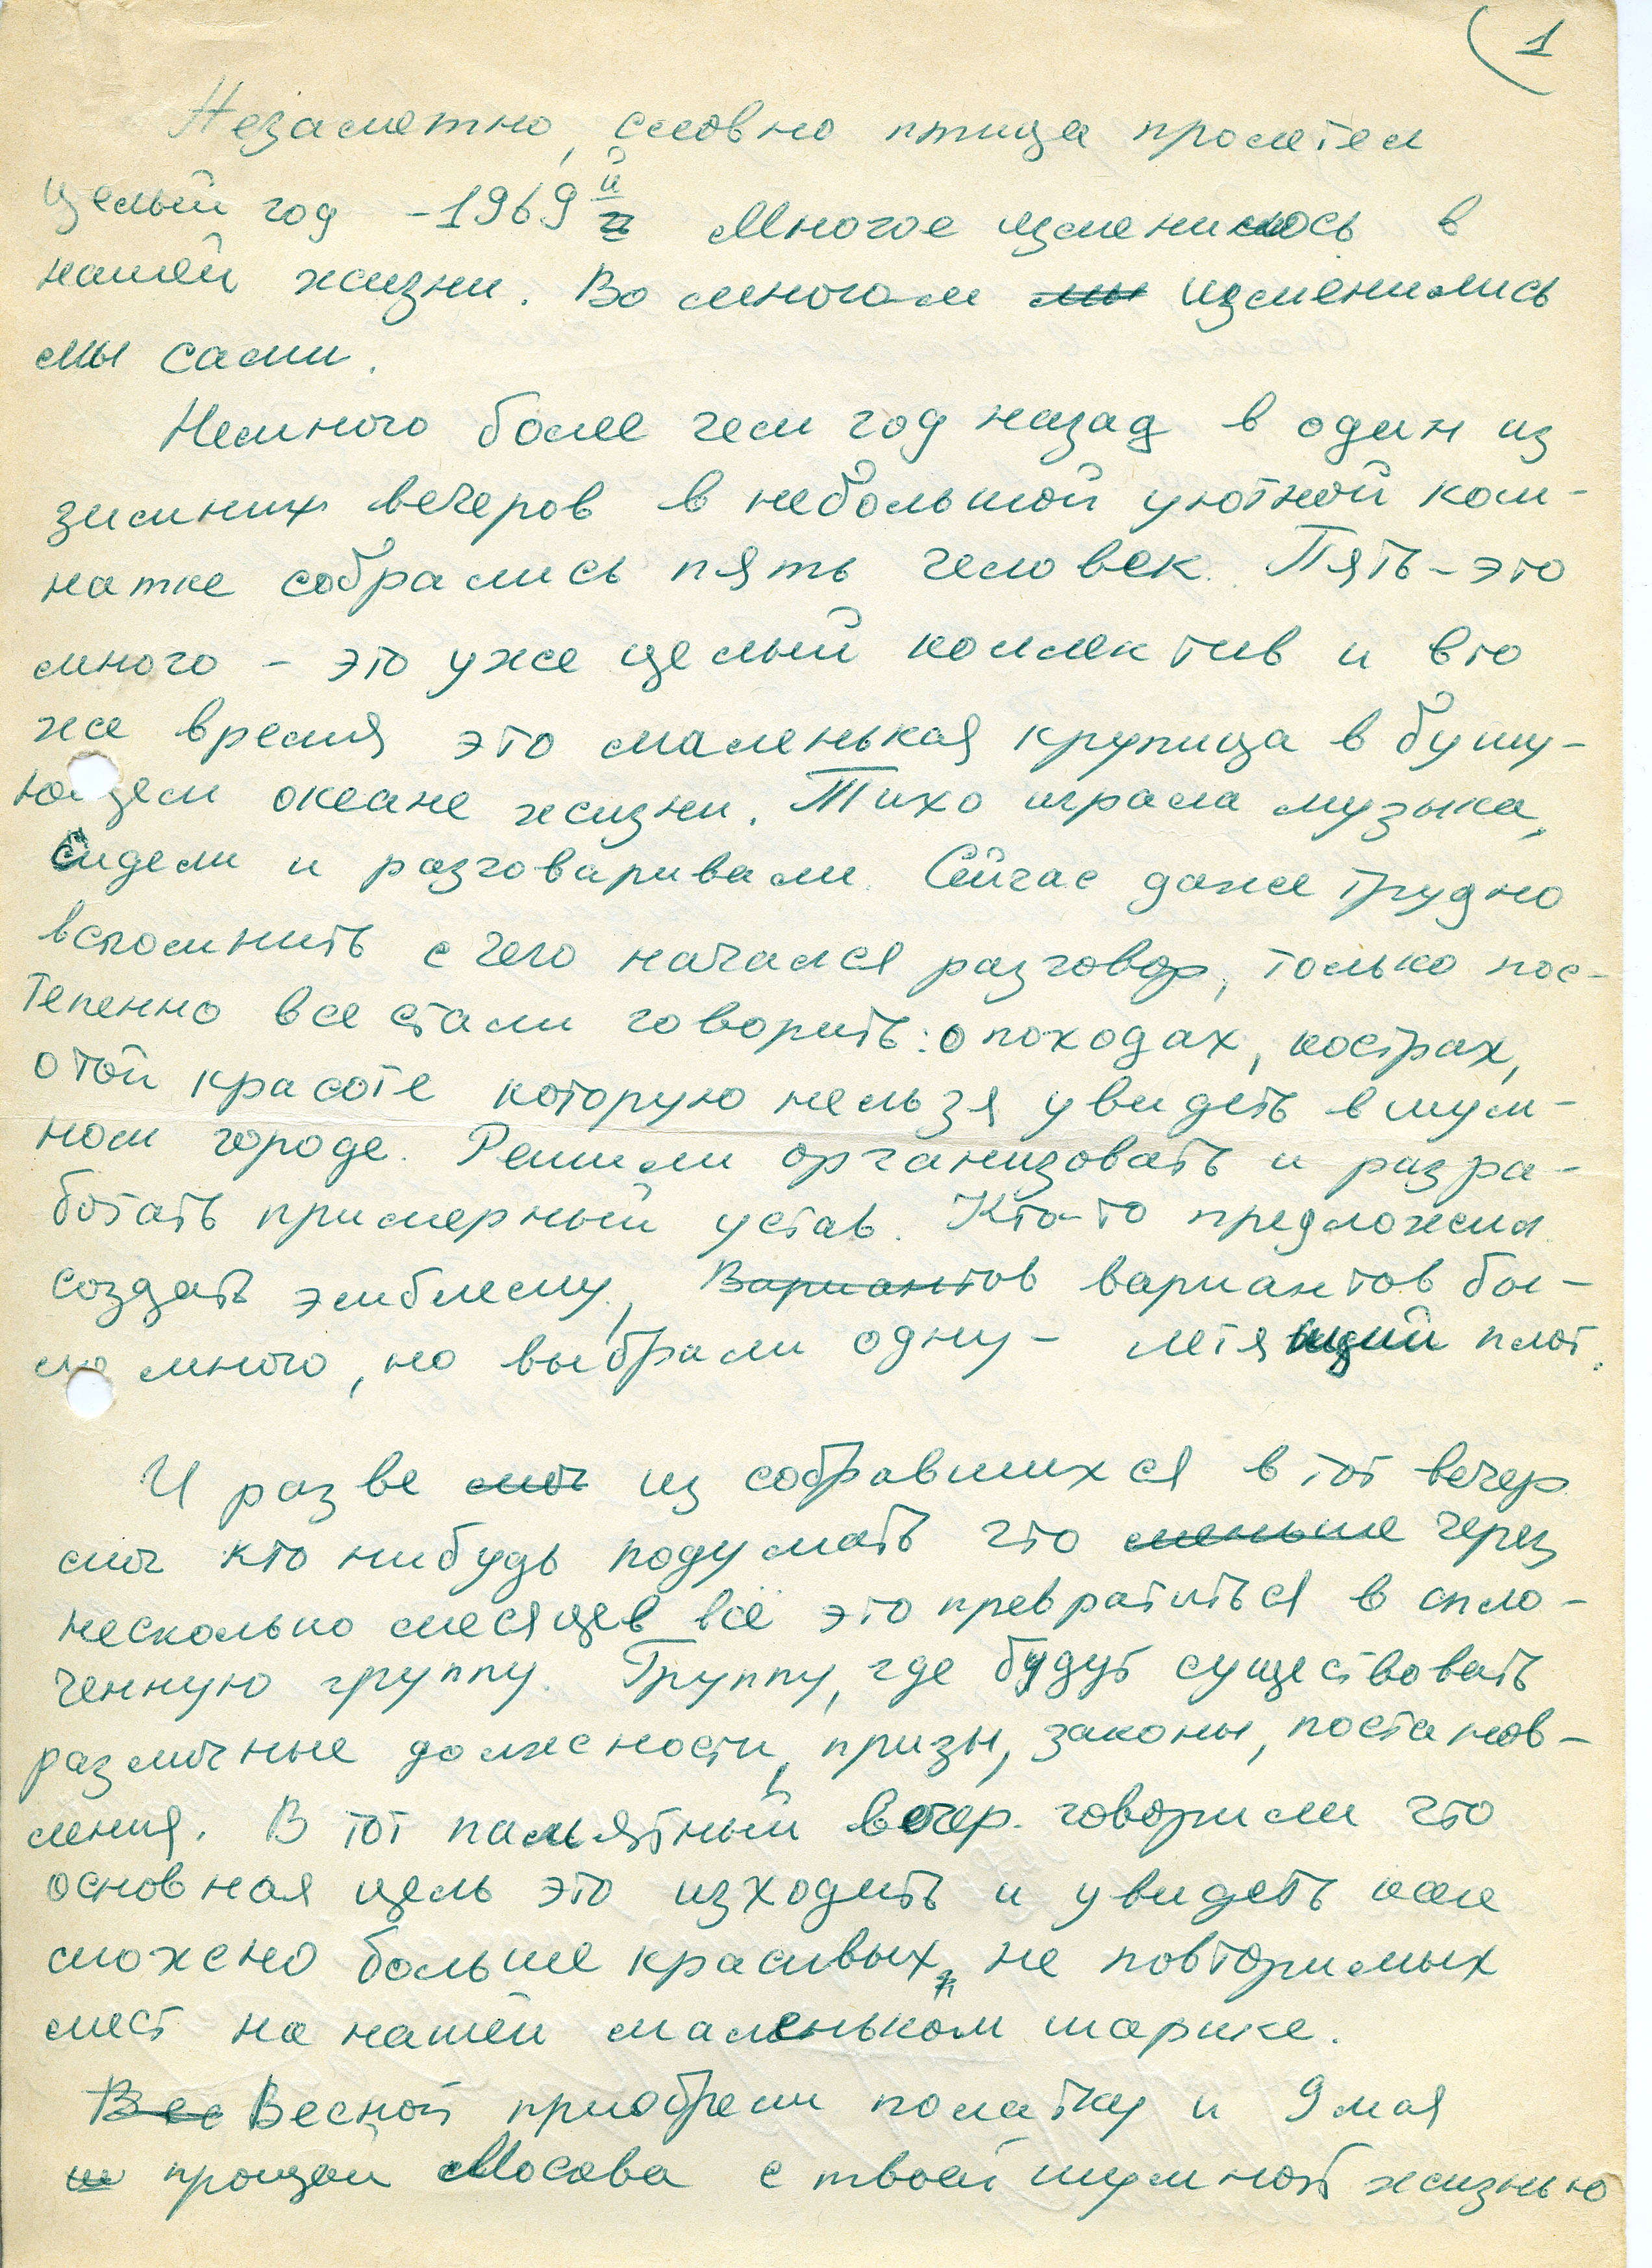 1
Незаметно, словно птица пролетел
целый год - 1969й Многое изменилось в
нашей жизни. Во многом мы изменились
мы сами.
Немного более чем год назад в один из
зимних вечеров в небольшой уютной ком-
натке собрались пять человек. Пять - это
много - это уже целый коллектив и в то
же время это маленькая крупица в бушу-
ющем океане жизни. Тихо играла музыка,
Сидели и разговаривали. Сейчас даже трудно
вспомнить с чего начался разговор, только пос-
тепенно все стали говорить: о походах, кострах,
о той красоте которую нельзя увидеть в шум-
ном городе. Решили организовать и разра-
ботать примерный устав. Кто-то предложил
создать эмблему, Вариантов вариантов бы-
ло много, но выбрали одну - летящий плот.
И разве мог из собравшихся в тот вечер
мог кто нибудь подумать что меньше через
несколько месяцев всё это превратиться в спло-
ченную группу. Группу, где будут существовать
различные должности, призы, законы, постанов-
ления. В тот памятный вечер говорили что
основная цель это изходить и увидеть как
можно больше красивых, не повторимых
мест на нашем маленьком шарике.
Вес Весной приобрели полатку и 9 мая
прощай Москва с твоей шумной жизнью